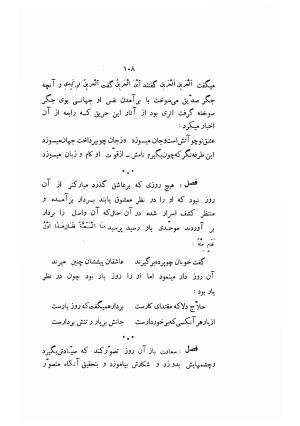 ۱۰۸
میگفت اَلحَریق اَلحَریق گفتند اَینَ الحَریق گفت اَلحَریق فی کَبِدی و آنچه
جگر صدّیق می‌سوخت با برآمدن نفس او جهانی بوی جگر
سوخته گرفت اثری بود از آثار این حریق که رابعه از آن
اخبار میکرد:
عشق تو چو آتش است و جان میسوزد وز جان چو برداخت جهان میسوزد
این طرفه نگر که چون بگیرم نامش - از قوّت او کام و زبان میسوزد
* * *
فصل : هیچ روزی که بر عاشق گذرد مبارکتر از آن
روز نبود که او را در نظر معشوق بابند بردار برآمیده و
منتظر کشف اسرار شده در آن حال که آن واصل را بردار
بر آوردند موحّدی باو رسید پرسید ما المَحبَّة فَقالَ هذا اَوَّلُ
قَدَمٍ مِنهُ :
گفت خوبان چو پرده برگیرند عاشقان پیششان چنین میرند
آن روز دار مینمود اما او را روز بار بود چون در نظر
یار بود :
حلّاج دلا که مقتدای کارست بردار همیگفت که روز بارست
از یار هر آنکسی که برخوردارست جانش بر یار و تنش بردارست
* * *
فصل : سعادت باز آن روز تصوّر کند که صیّادش بگیرد
و چشمهایش بدوزد و شکارش بیاموزد و بتحقیق آنگاه متصوّر